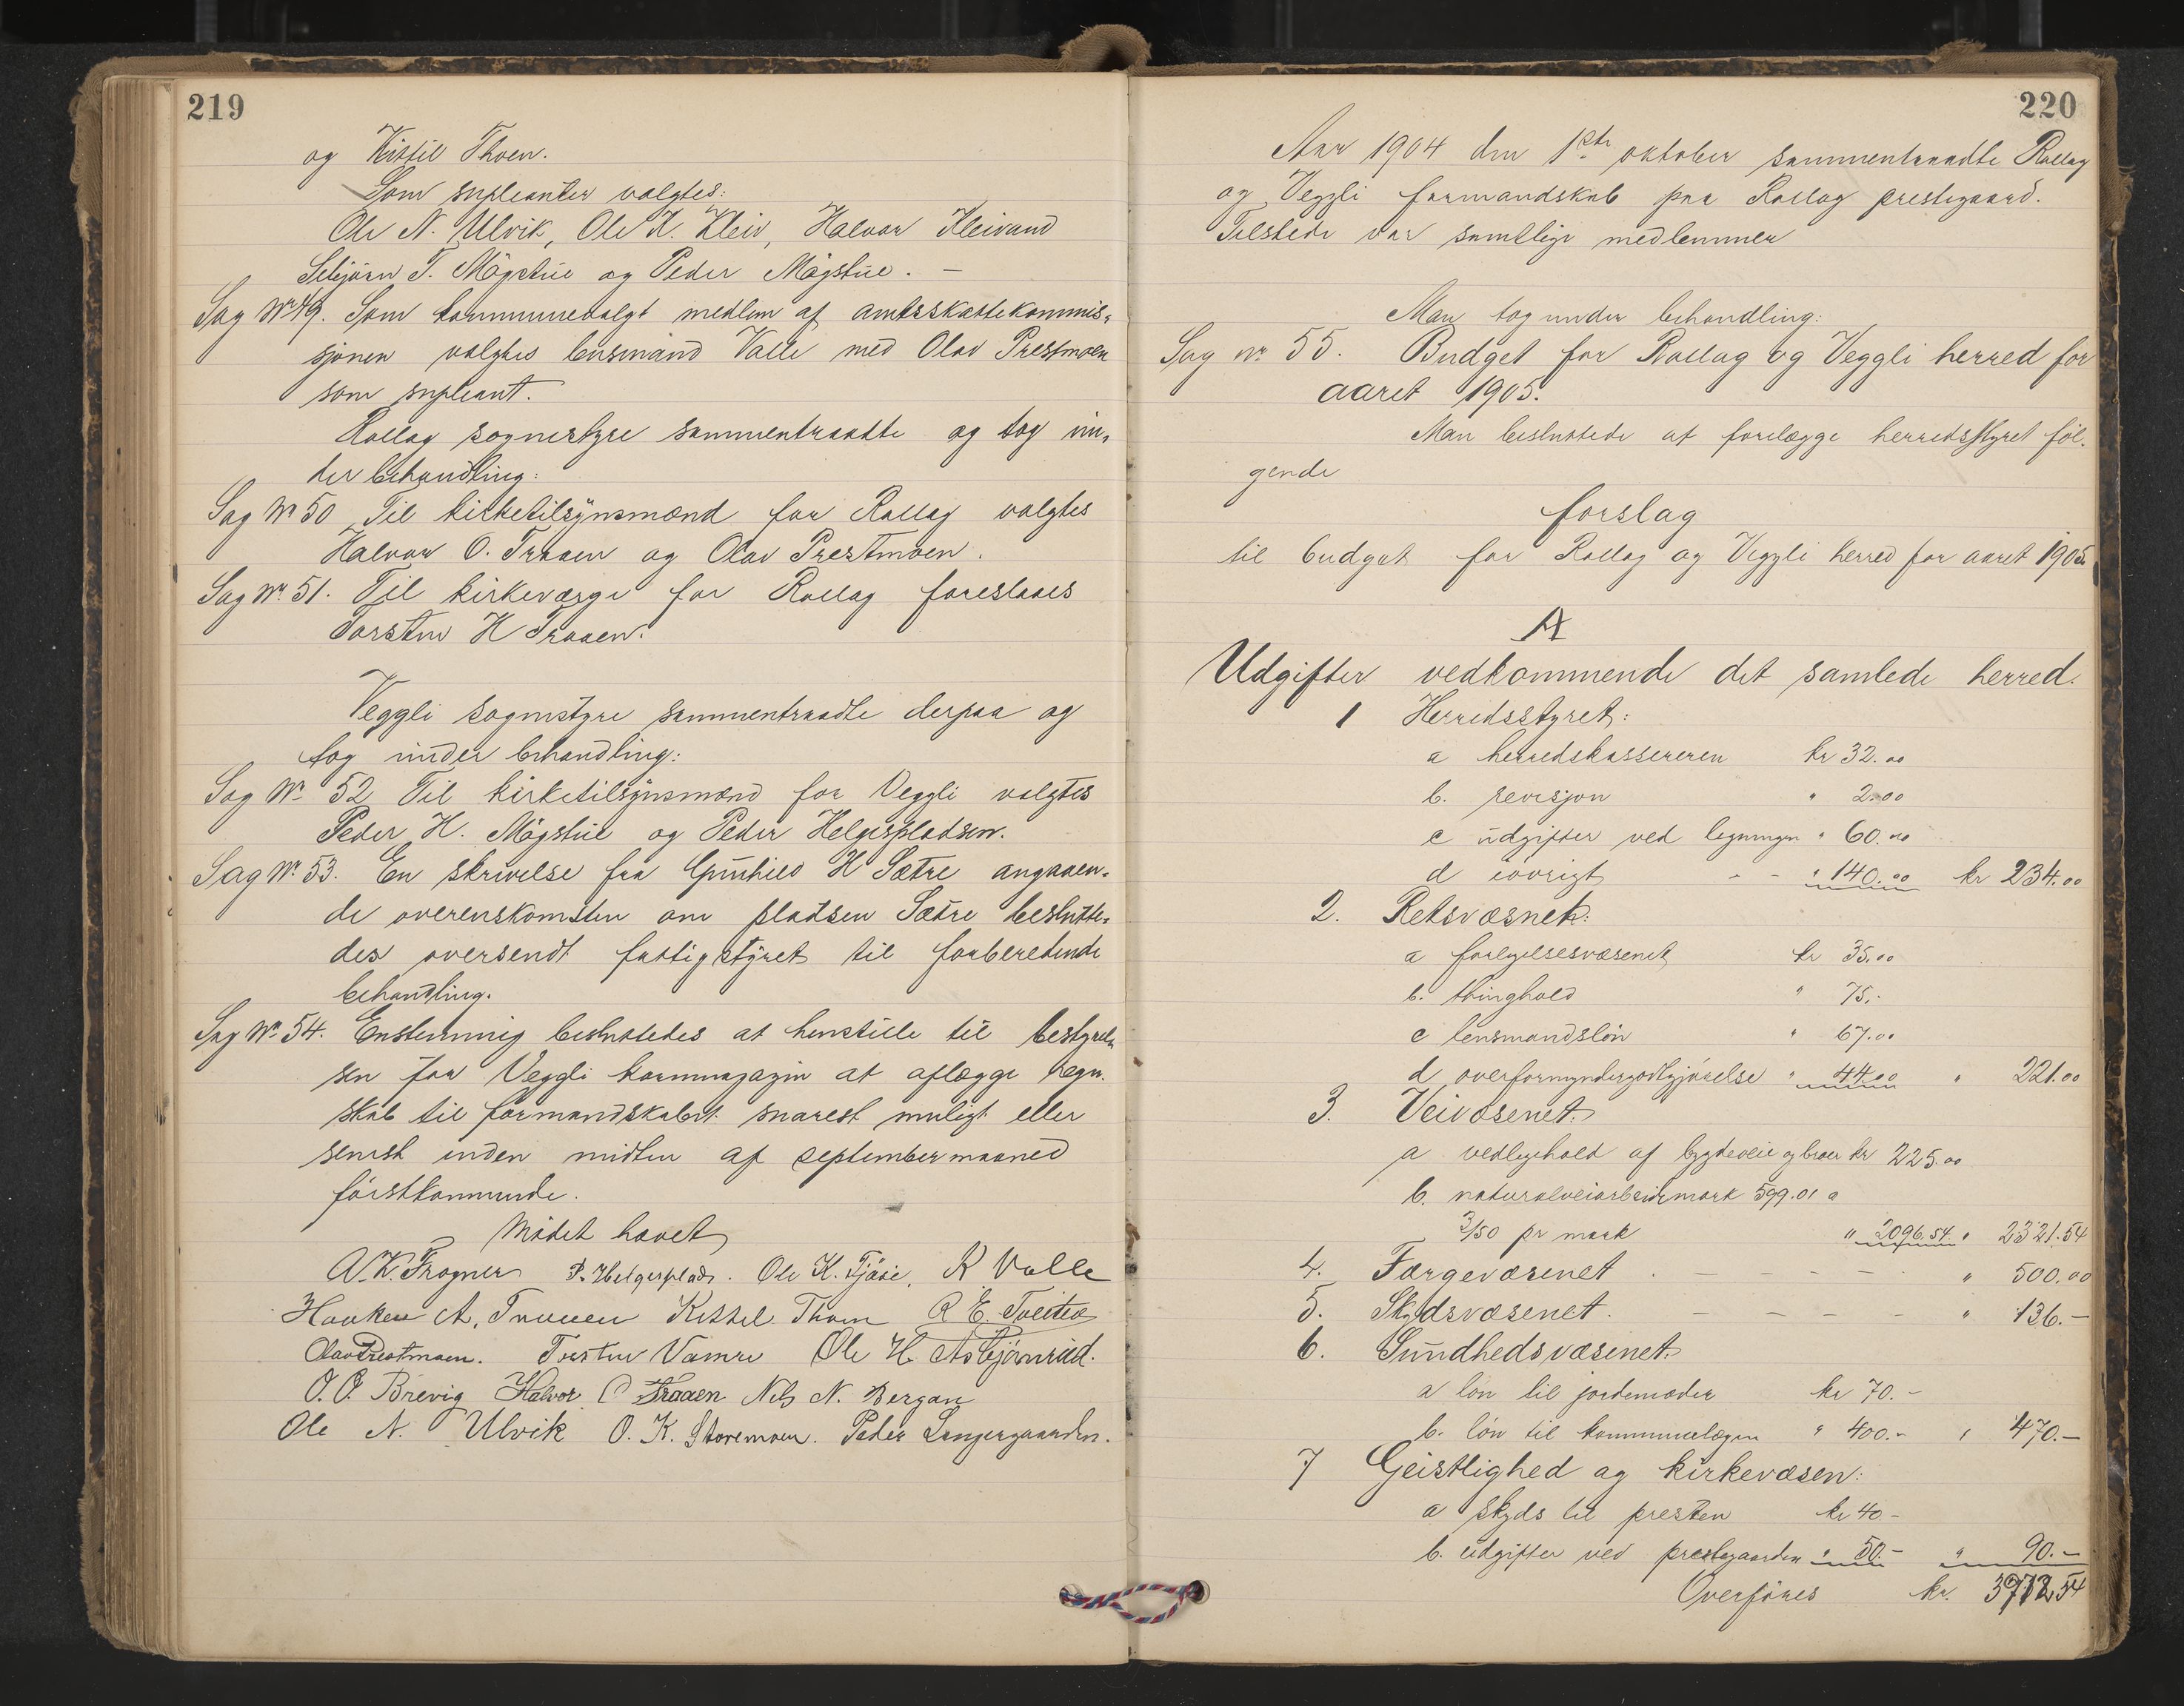 219
og Kittil Thoen.
Som supleanter valgtes:
Ole N. Ulvik, Ole K. Kleiv, Halvor Kleivand
T. Mögstue og Peder Mögstue. —
Sag Nr 49. Som kommunevalgt medlem af amtsskattekommis-
sjonen valgtes lensmand Valle med Olav Prestmoen
som supleant.
Rollag sognestyre sammentraadte og tog un-
der behandling:
Sag Nr 50 Til kirketilsynsmænd for Rollag valgtes
Halvor O. Traaen og Olav Prestmoen.
Sag Nr. 51. Til kirkeværge for Rollag foreslaaes
Torsten H Traaen.
Veggli sognestyre sammentraadte derpaa og
tog under behandling:
Sag Nr 52 Til kirketilsynsmænd for Veggli valgtes
Peder H. Mögstue og Peder Helgespladsen.
Sag Nr. 53. En skrivelse fra Gunhild K Sætre angaaen-
de overenskomsten om pladsen Sætre beslutte-
des oversendt fattigstyret til forberedende
behandling.
Sag Nr. 54. Enstemmig besluttedes at henstille til bestyrel-
sen for Veggli kornmagazin at aflægge regn-
skab til formandskabet snarest muligt eller
senest inden midten af september maaned
förstkommende.
Mödet hævet
A. K. Frogner P. Helgesplads. Ole K. Tjäse, K Valle
Haaken A. Traaen Kittil Thoen R E. Tveiten
Olav Prestmoen. Torsten Vamre Ole H. Asbjörnrud.
O. O. Brevig Halvor O Traaen Nels N. Bergan
Ole N. Ulvik O. K. Storemoen. Peder Langergaarden.
220
Aar 1904 den 1ste oktober sammentraadte Rollag
og Veggli formandskab paa Rollag prestegaard.
Tilstede var samtlige medlemmer
Man tog under behandling:
Sag nr. 55. Budget for Rollag og Veggli herred for
aaret 1905.
Man besluttede at forelægge herredsstyret föl-
gende
forslag
til budget for Rollag og Veggli herred for aaret 1905.
A
Udgifter vedkommende det samlede herred.
1 Herredsstyret:
a herredskassereren kr 32.00
b. revisjon " 2.00
c udgifter ved ligningen " 60.00
d iövrigt - - " 140.00 kr 234.00
2. Retsvæsnet:
a forligelsesvæsenet kr 35.00
b. thinghold " 75.-
c lensmandslön " 67.00
d overformyndergodtgjörelse " 44.00 " 221.00
3. Veivæsenet:
a vedligehold af bygdeveie og broer kr 225.00
b. naturalveiarbeide mark 599.01 a
3/50 pr mark " 2096.54 " 2321.54
4. Færgevæsenet . — — — " 500.00
5. Skydsvæsenet. — — — — " 136.—
6. Sundhedsvæsenet:
a lön til jordemoder kr 70.-
b. lön til kommunelægen " 400.- " 470.—
7 Geistlighed og kirkevæsen:
a skyds til presten kr 40.-
b. udgifter ved prestegaarden " 50.- " 90.—
Overföres kr. 3972.54